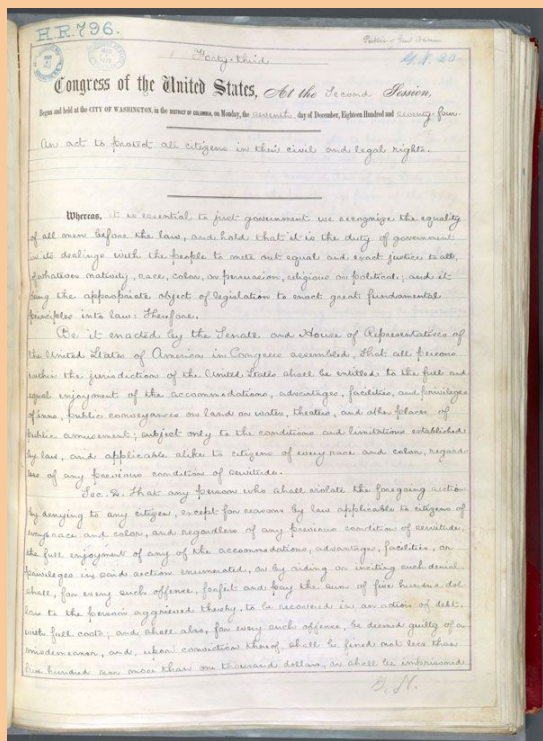 H.R. 796.
Forty-third
Congress of the United States, At the Second Session,
Begun and held at the CITY OF WASHINGTON, in the DISTRICT OF COLUMBIA, on Monday, the seventh day of December, Eighteen Hundred and seventy-four.
An act to protect all citizens in their civil and legal rights.
Whereas, it is essential to just government we recognize the equality
of all men before the law, and hold that it is the duty of government
in its dealings with the people to mete out equal and exact justice to all,
of whatever nativity, race, color, or persuasion, religious or political; and it
being the appropriate object of legislation to enact great fundamental
principles into law: Therefore,
Be it enacted by the Senate and House of Representatives of
the United States of America in Congress assembled, That all persons
within the jurisdiction of the United States shall be entitled to the full and
equal enjoyment of the accommodations, advantages, facilities, and privileges
of inns, public conveyances on land or water, theaters, and other places of
public amusement; subject only to the conditions and limitations established
by law, and applicable alike to citizens of every race and color, regard
less of any previous condition of servitude.
Sec. 2. That any person who shall violate the foregoing section
by denying to any citizen, except for reasons by law applicable to citizens of
every race and color, and regardless of any previous condition of servitude,
the full enjoyment of any of the accommodations, advantages, facilities, or
privileges in said section enumerated, or by aiding or inciting such denial,
shall, for every such offence, forfeit and pay the sum of five hundred dol
lars to the person aggrieved thereby, to be recovered in an action of debt,
with full costs; and shall also, for every such offence, be deemed guilty of a
misdemeanor, and, upon conviction thereof, shall be fined not less than
five hundred nor more than one thousand dollars, or shall be imprisoned